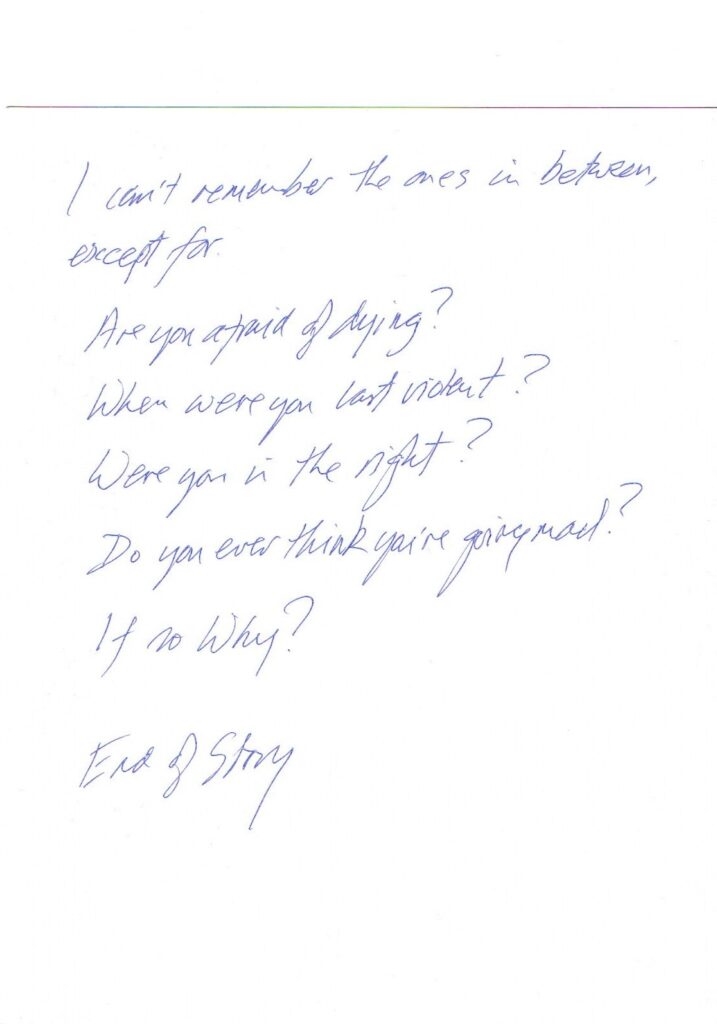 I can't remember the ones in between,
except for.
Are you afraid of dying?
When were you last violent?
Were you in the right?
Do you ever think you're going mad?
If so Why?
End of Story